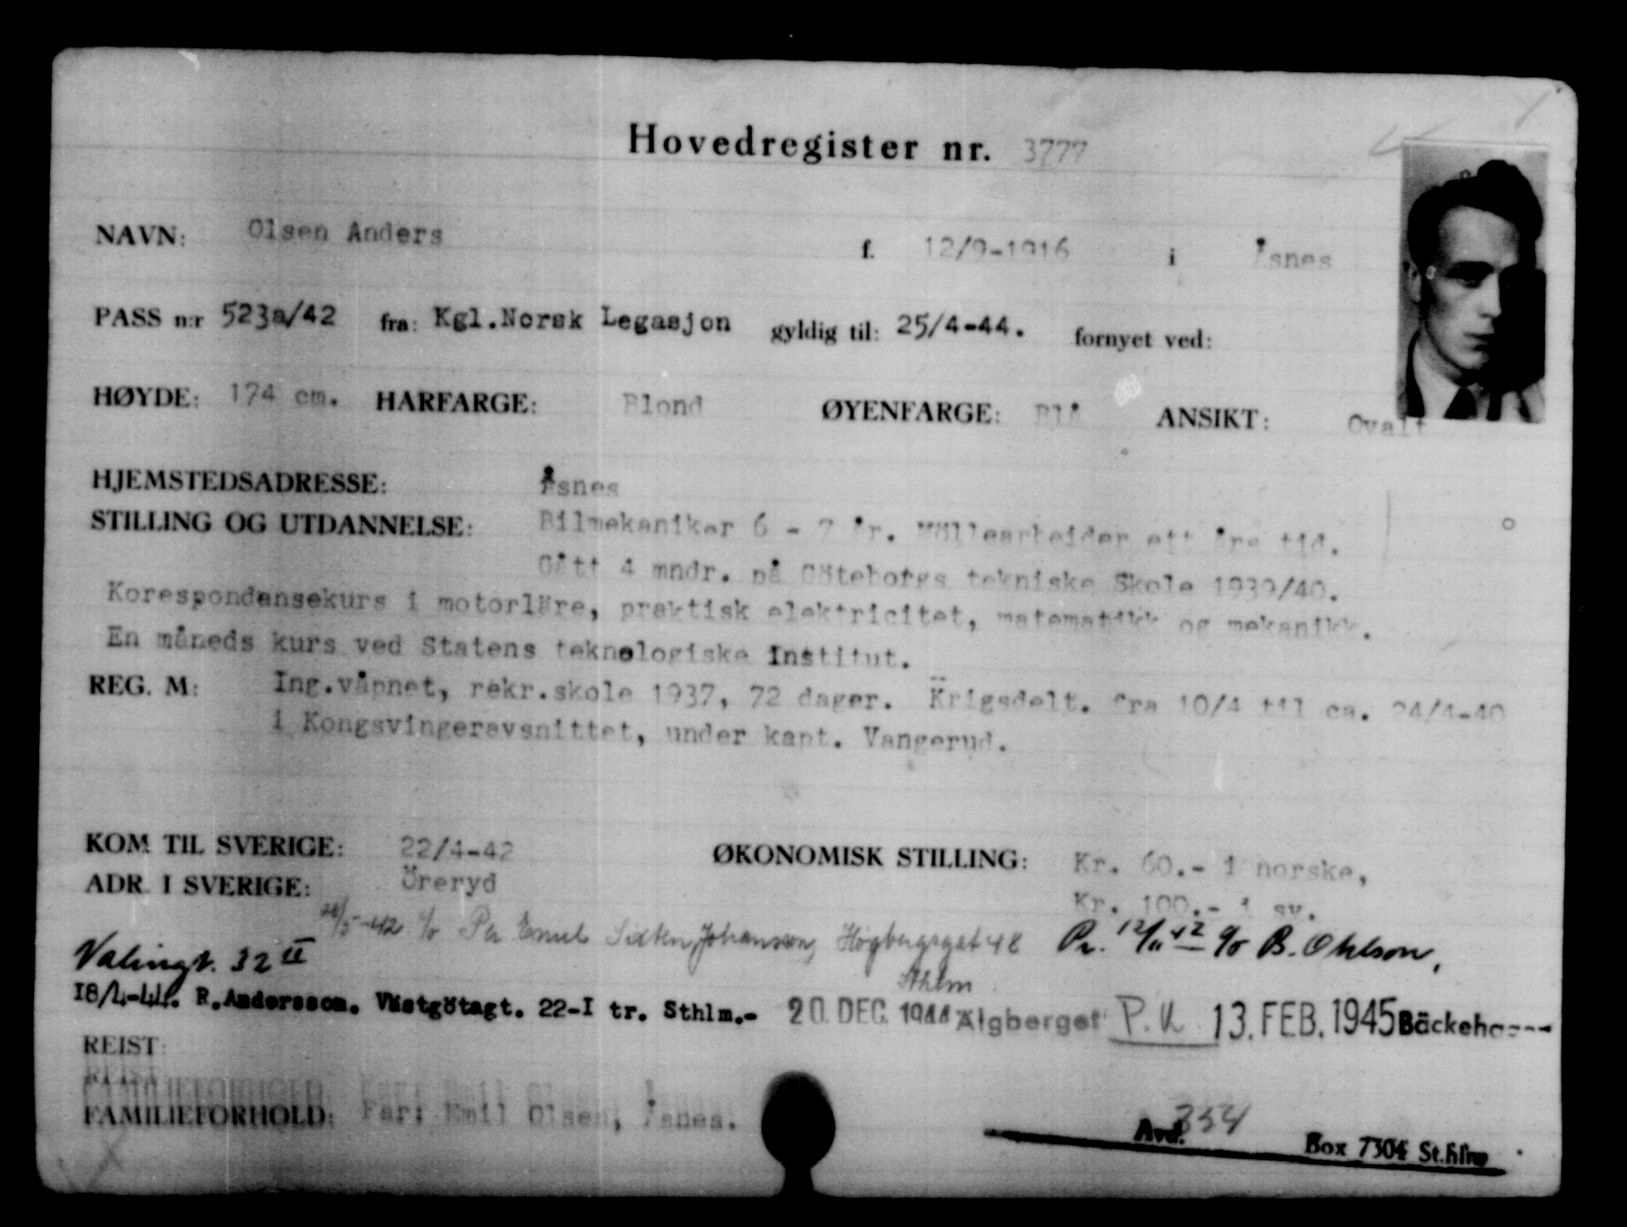 Hovedregister nr. 3777
NAVN: Olsen Anders f. 12/9-1916 i Åsnes
PASS n:r 523a/42 fra: Kgl.Norsk Legasjon gyldig til: 25/4-44. fornyet ved:
HØYDE: 174 cm. HARFARGE: Blond ØYENFARGE: Blå ANSIKT: Ovalt
HJEMSTEDSADRESSE: Åsnes
STILLING OG UTDANNELSE: Bilmekaniker 6 - 7 år. Möllearbeider ett års tid.
Gått 4 mndr. på Göteborgs tekniske Skole 1939/40.
Korespondensekurs i motorläre, praktisk elektricitet, matematikk og mekanikk.
En måneds kurs ved Statens teknologiske Institut.
REG. M: Ing.våpnet, rekr.skole 1937, 72 dager. Krigsdelt. fra 10/4 til ca. 24/4-40
i Kongsvingeravsnittet, under kapt. Vangerud.
KOM TIL SVERIGE: 22/4-42 ØKONOMISK STILLING: Kr. 60.- i norske,
ADR. I SVERIGE: Öreryd Kr. 100.- i sv.
/5-42 c/o Per Emil Johansson, Högbergsgat 48 Sthlm Pr. 12/11 42 c/o B. Ohlson,
Valingt. 32 II
18/4-44. R.Andersson. Västgötagt. 22-I tr. Sthlm.- 20. DEC. 1944 Älgberget P.K 13. FEB. 1945 Bäckehagen
REIST:
FAMILIEFORHOLD: Far: Emil Olsen, Åsnes.
Avd. 354 Box 7304 Sthlm